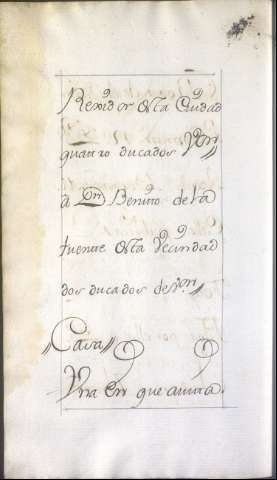 Rexidor desta Ciudad
quatro ducados Von
a Dn Benito de la
fuente desta Vecindad
dos ducados de von
Casa
Vna en que auita